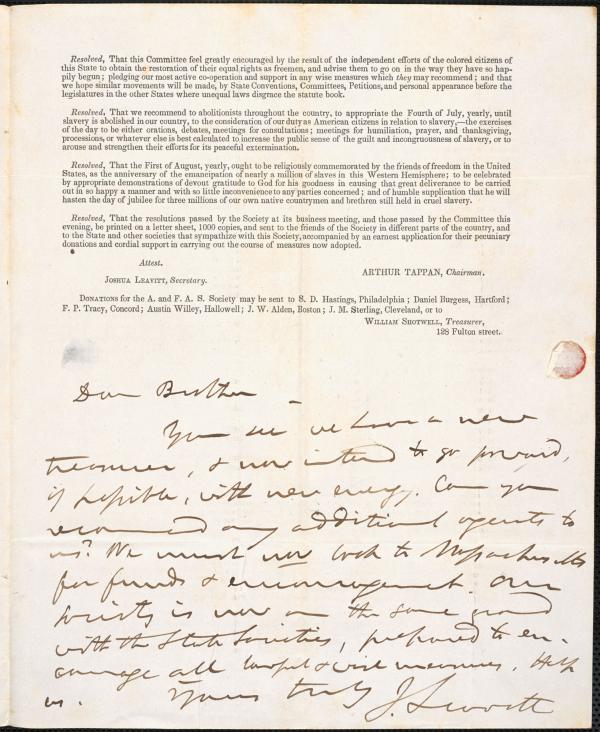 Resolved, That this Committee feel greatly encouraged by the result of the independent efforts of the colored citizens of
this State to obtain the restoration of their equal rights as freemen, and advise them to go on in the way they have so hap-
pily begun; pledging our most active co-operation and support in any wise measures which they may recommend; and that
we hope similar movements will be made, by State Conventions, Committees, Petitions, and personal appearance before the
legislatures in the other States where unequal laws disgrace the statute book.
Resolved, That we recommend to abolitionists throughout the country, to appropriate the Fourth of July, yearly, until
slavery is abolished in our country, to the consideration of our duty as American citizens in relation to slavery,—the exercises
of the day to be either orations, debates, meetings for consultations; meetings for humiliation, prayer, and thanksgiving,
processions, or whatever else is best calculated to increase the public sense of the guilt and incongruousness of slavery, or to
arouse and strengthen their efforts for its peaceful extermination.
Resolved, That the First of August, yearly, ought to be religiously commemorated by the friends of freedom in the United
States, as the anniversary of the emancipation of nearly a million of slaves in this Western Hemisphere; to be celebrated
by appropriate demonstrations of devout gratitude to God for his goodness in causing that great deliverance to be carried
out in so happy a manner and with so little inconvenience to any parties concerned; and of humble supplication that he will
hasten the day of jubilee for three millions of our own native countrymen and brethren still held in cruel slavery.
Resolved, That the resolutions passed by the Society at its business meeting, and those passed by the Committee this
evening, be printed on a letter sheet, 1000 copies, and sent to the friends of the Society in different parts of the country, and
to the State and other societies that sympathize with this Society, accompanied by an earnest application for their pecuniary
donations and cordial support in carrying out the course of measures now adopted.
Attest.
ARTHUR TAPPAN, Chairman.
JOSHUA LEAVITT, Secretary.
DONATIONS for the A. and F. A. S. Society may be sent to S. D. Hastings, Philadelphia; Daniel Burgess, Hartford;
F. P. Tracy, Concord; Austin Willey, Hallowell; J. W. Alden, Boston; J. M. Sterling, Cleveland, or to
WILLIAM SHOTWELL, Treasurer,
128 Fulton street.
Dear Brother –
You see we have a new
treasurer, & now intend to go forward,
if possible, with new energy. Can you
recommend any additional agents to
us? We must now look to Massachusetts
for funds & encouragement. Our
society is now on the same ground
with the State Societies, prepared to en-
courage all lawful & wise measures. Help
us. Yours truly J. Leavitt